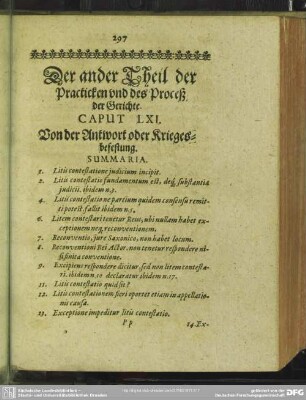 297
Der ander Theil der
Practicken vnd des Proceß
der Gerichte.
CAPUT LXI.
Von der Antwort oder Krieges-
befestung.
SUMMARIA.
1. Litis contestatione judicium incipit.
2. Litis contestatio fundamentum est, deq́; substantia
judicii. ibidem n.3.
4. Litis contestatione partium quidem consensu remit-
ti potest, fallit ibidem n.5.
6. Litem contestari tenetur Reus, ubi nullam habet ex-
ceptionem neq; reconventionem.
7. Reconventio, jure Saxonico, non habet locum.
8. Reconventioni Rei Actor, non tenetur respondere ni-
si finita conventione.
9. Excipiens respondere dicitur sed non litem contesta-
ri. ibidem n.10 declaratur ibidem n.17.
11. Litis contestatio quid sit?
12. Litis contestationem fieri oportet etiam in appellatio-
nis causa.
13. Exceptione impeditur litis contestatio.
Pp
14. Ex-
DFG